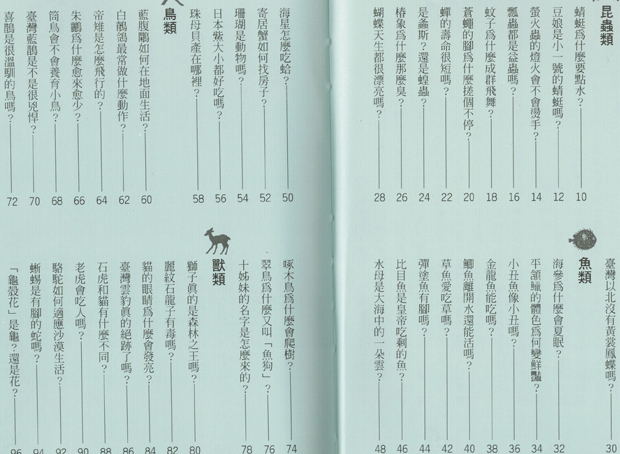 昆蟲類
蜻蜓爲什麼要點水？ 10
豆娘是小一號的蜻蜓嗎？ 12
螢火蟲的燈火會不會燙手？ 14
瓢蟲都是益蟲嗎？ 16
蚊子爲什麼成群飛舞？ 18
蒼蠅的腳爲什麼搓個不停？ 20
蟬的壽命很短嗎？ 22
是螽斯？還是蝗蟲？ 24
椿象爲什麼那麼臭？ 26
蝴蝶天生都很漂亮嗎？ 28
臺灣以北沒有黃裳鳳蝶嗎？ 30
魚類
海參爲什麼會夏眠？ 32
平頷鱲的體色爲何變鮮豔？ 34
小丑魚像小丑嗎？ 36
金龍魚能吃嗎？ 38
鯽魚離開水還能活嗎？ 40
草魚愛吃草嗎？ 42
彈塗魚有腳嗎？ 44
比目魚是皇帝吃剩的魚？ 46
水母是大海中的一朵雲？ 48
海星怎麼吃蛤？ 50
寄居蟹如何找房子？ 52
珊瑚是動物嗎？ 54
日本紫大小都好吃嗎？ 56
珠母貝產在哪裡？ 58
鳥類
藍腹鷴如何在地面生活？ 60
白鶺鴒最常做什麼動作？ 62
帝雉是怎麼飛行的？ 64
朱鸝爲什麼愈來愈少？ 66
筒鳥會不會養育小鳥？ 68
臺灣藍鵲是不是很兇悍？ 70
喜鵲是很溫馴的鳥嗎？ 72
啄木鳥爲什麼會爬樹？ 74
翠鳥爲什麼又叫「魚狗」？ 76
十姊妹的名字是怎麼來的？ 78
獸類
獅子真的是森林之王嗎？ 80
麗紋石龍子有毒嗎？ 82
貓的眼睛爲什麼會發亮？ 84
臺灣雲豹真的絕跡了嗎？ 86
石虎和貓有什麼不同？ 88
老虎會吃人嗎？ 90
駱駝如何適應沙漠生活？ 92
蜥蜴是有腳的蛇嗎？ 94
「龜殼花」是龜？還是花？ 96